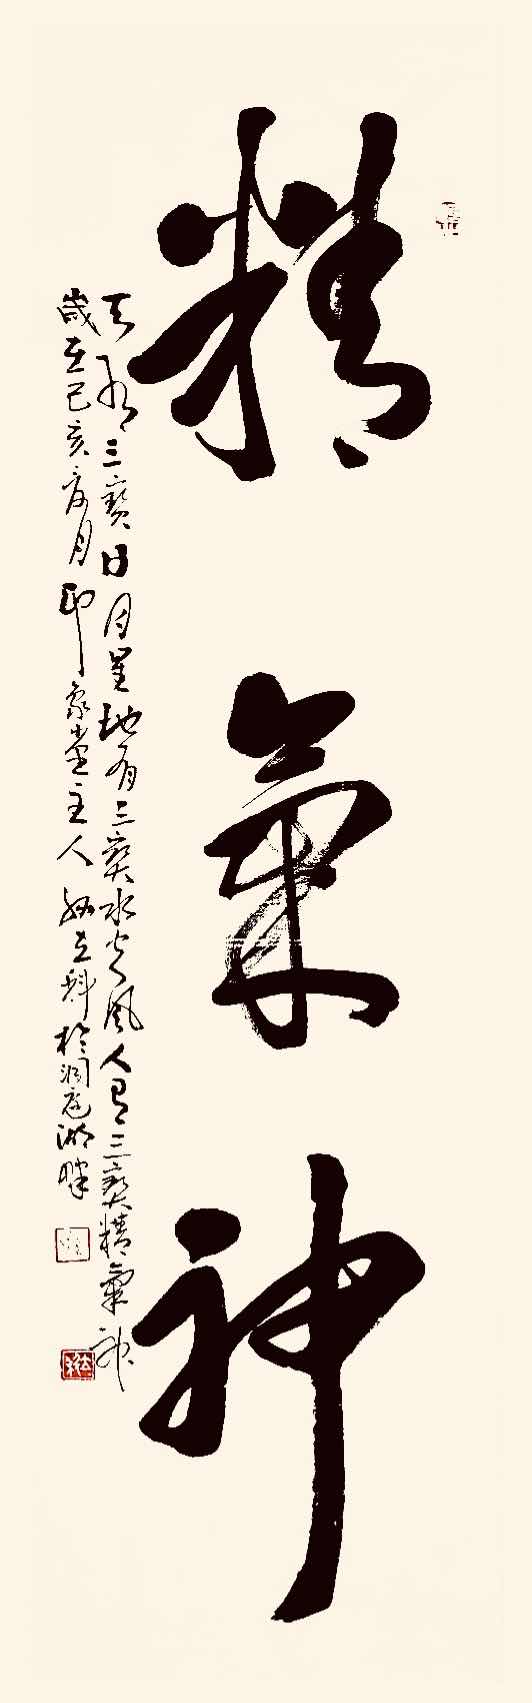 精氣神
天有三寶日月星地有三寶水火風人有三寶精氣神
歲在己亥夏月印象堂主人於洞庭湖畔